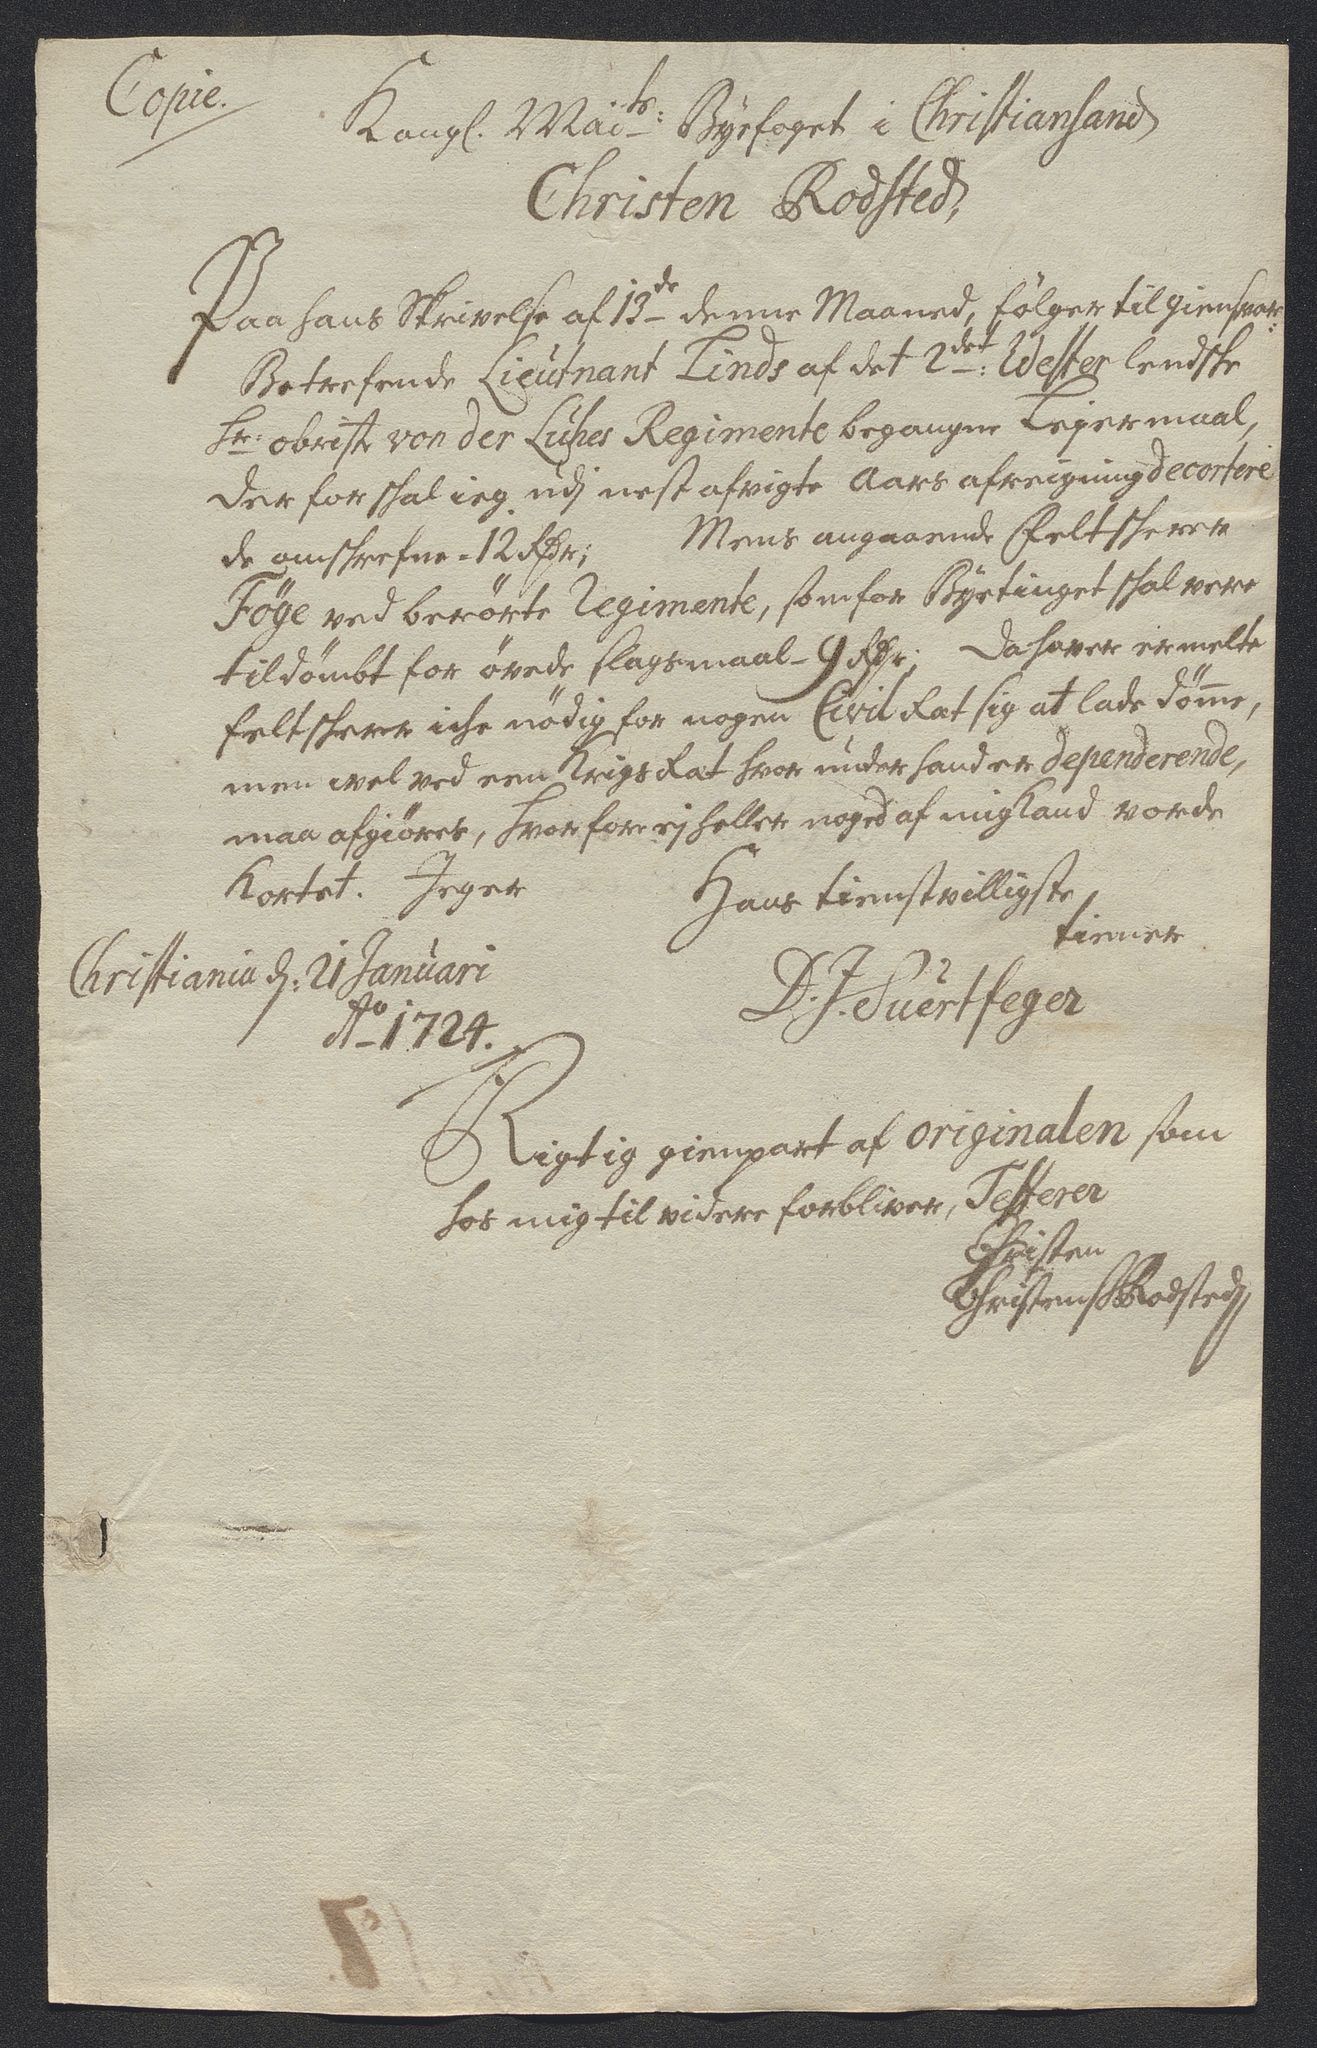 Copie.
Kongl. Maits: Byefoget i Christiansand
Christen Rodsted,
Paa hans Skrivelse af 13de denne Maaned, fölger til giensvar:
Betrefende Lieutnant Linds af det 2det: Wester lendske
hr: obrist von der Lühes Regimente begangne Lejermaal,
derfor skal ieg udj nest afvigte Aars afreigning decortere
de omskrefne - 12 Rdr; Mens angaaende Feltskerer
Föge ved berörte Regimente, som for Byetinget skal vere
tildömbt for övede slagsmaal - 9 Rdr; Da haver ermelte
feltskerer iche nödig for nogen Civil Rat sig at lade döm̄e,
men vel ved een Krigs Rat hvor under hand er dependerende,
maa afgiöres, hvorfore ej heller noged af mig kand vorde
Kortet. Jeg er
Hans tienstvilligste
tiener
Christiania d: 21 Januari
Ao 1724.
D. J. Suertfeger
Rigtig gienpart af originalen som
hos mig til videre forbliver, Testerer
Christen
Christens: Rodsted